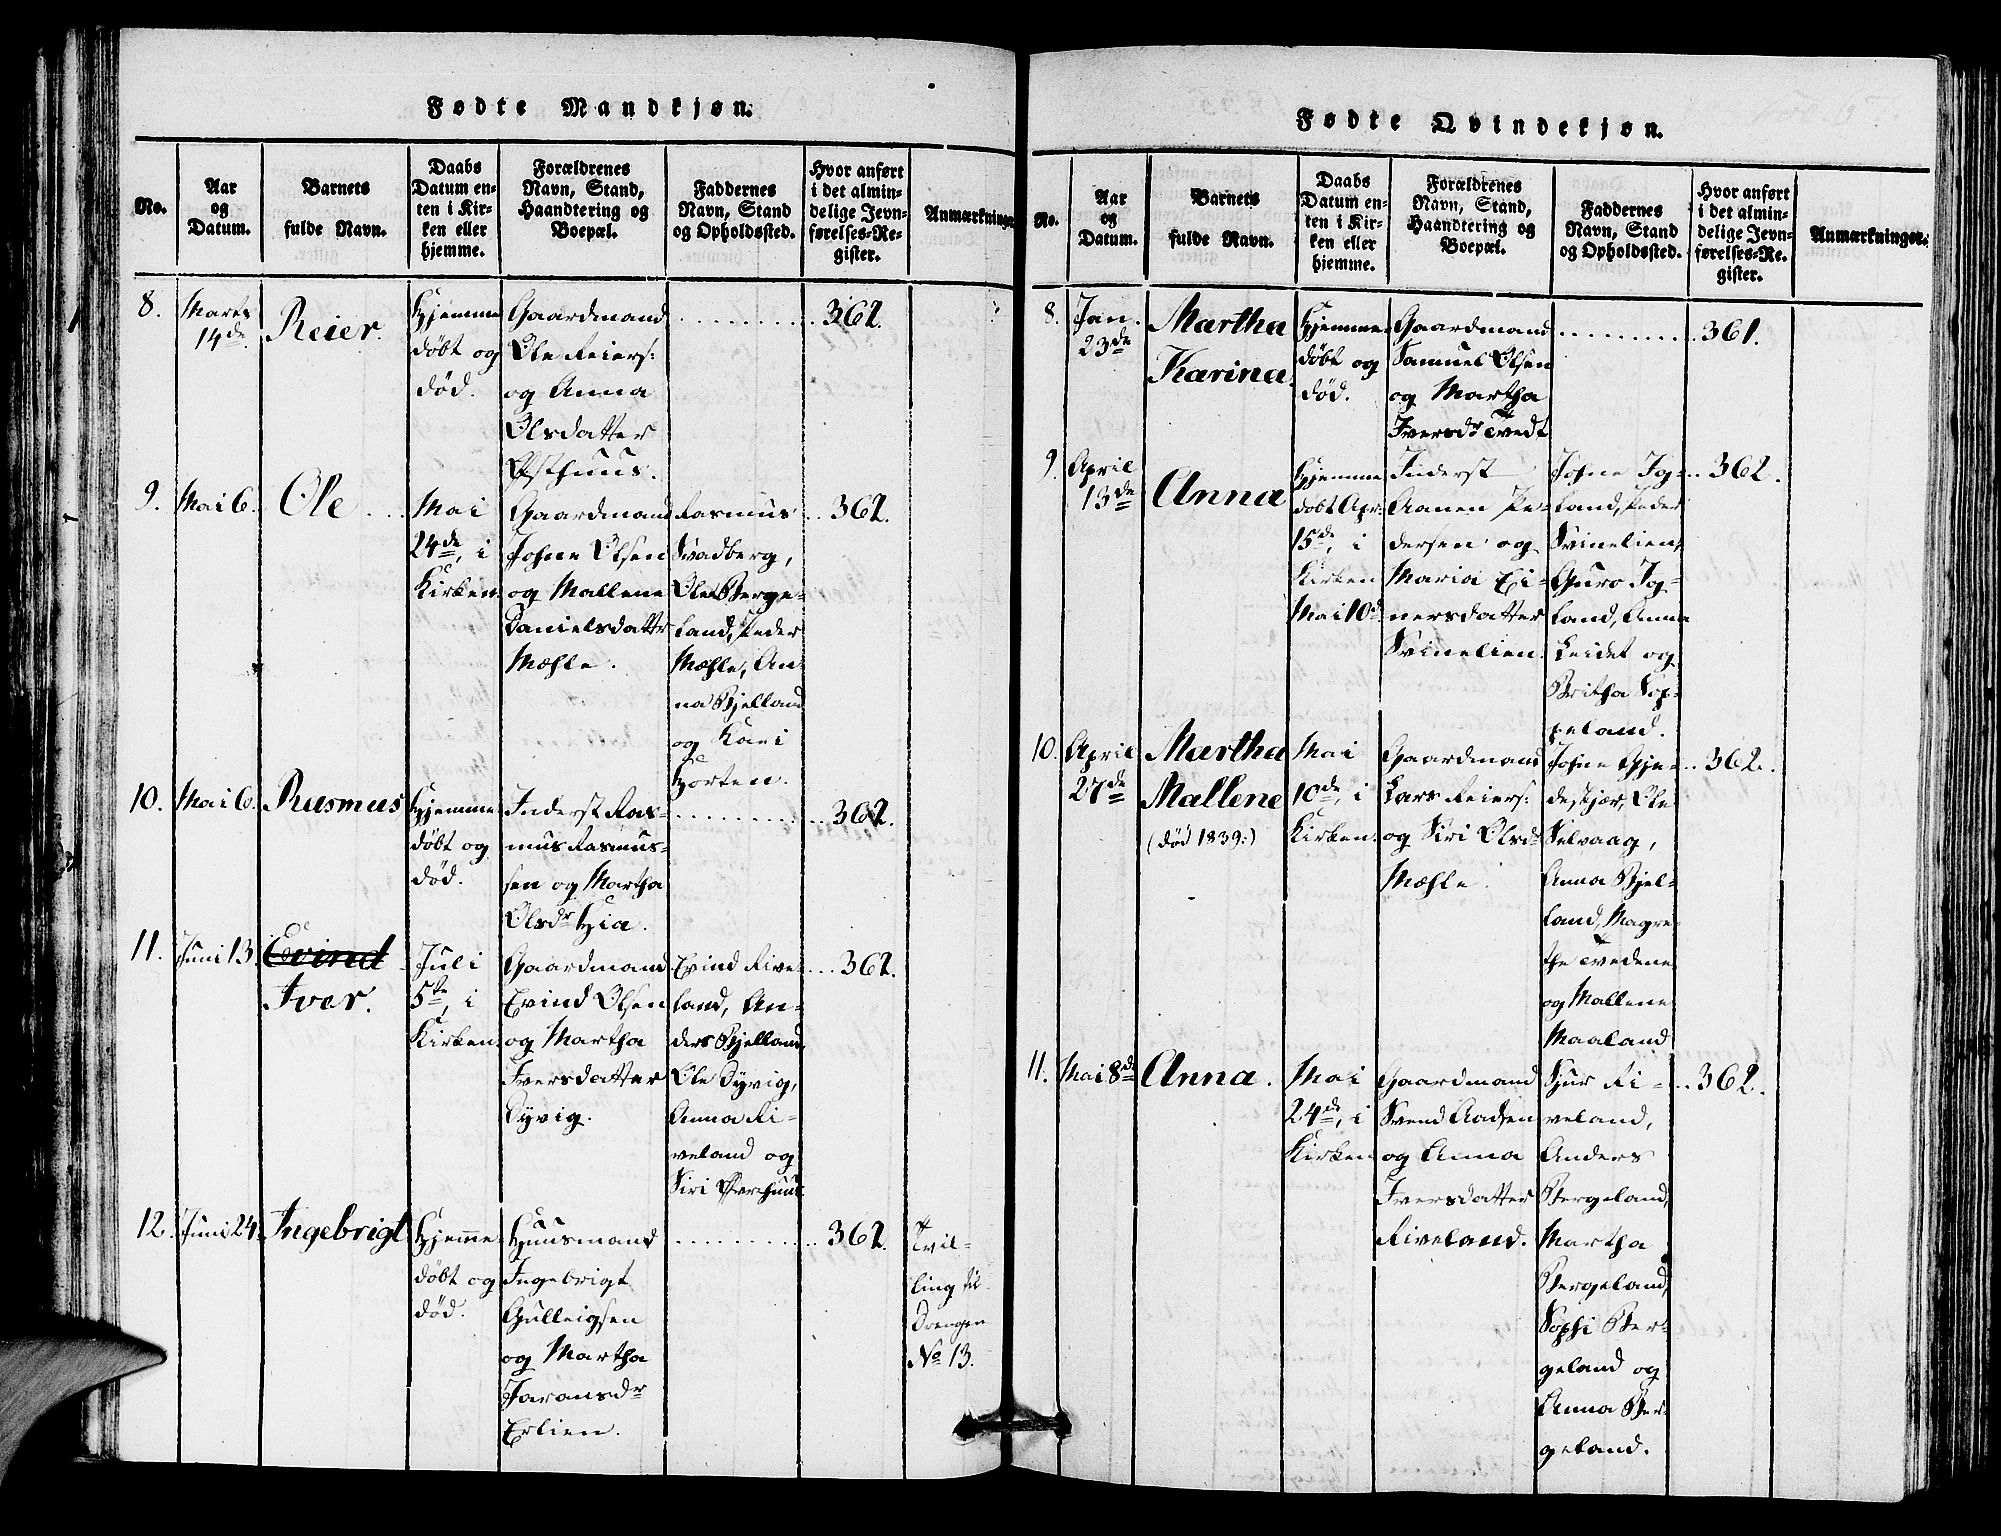 Fødte Mandkjøn.
No.
Aar
og
Datum.
Barnets
fulde Navn.
Daabs
Datum en-
ten i Kir-
ken eller
hjemme.
Forældrenes
Navn, Stand,
Haandtering og
Boepæl.
Faddernes
Navn, Stand
og Opholdssted.
Hvor anført
i det almin-
delige Jevn-
førelses-Re-
gister.
Anmærkninger
8.
Marts
14de
Reier.
Hjemme
døbt og
død.
Gaardmand
Ole Reiers:
og Anna
Olsdatter
Østhuus.
362.
9.
Mai 6.
Ole
Mai
24de, i
Kirken.
Gaardmand
Johne Olsen
og Mallene
Danielsdatter
Mæhle.
Rasmus
Svadberg,
Ole Berge-
land, Peder
Mæhle, An-
na Bjelland
og Kari
Horten.
362.
10.
Mai 6.
Rasmus
Hjemme
døbt og
død.
Inderst Ras-
mus Rasmus-
sen og Martha
Olsdr Hia.
362.
11.
Juni 13.
Evind
Iver.
Juli
5te, i
Kirken.
Gaardmand
Evind Olsen
og Martha
Iversdatter
Dyvig.
Evind Rive-
land, An-
ders Bjelland,
Ole Dyvig,
Anna Ri-
veland og
Siri
362.
12.
Juni 24.
Ingebrigt
Hjemme
døbt og
død.
Huusmand
Ingebrigt
Gulleigsen
og Martha
Jaransdr
Erlien.
362.
Tvil-
ling til
Drengen
No 13.
Fødte Qvindekjøn.
No.
Aar
og
Datum.
Barnets
fulde Navn.
Daabs
Datum en-
ten i Kir-
ken eller
hjemme.
Forældrenes
Navn, Stand,
Haandtering og
Boepæl.
Faddernes
Navn, Stand
og Opholdssted.
Hvor anført
i det almin-
delige Jevn-
førelses-Re-
gister.
Anmærkninger.
8.
Jan.
23de
Martha
Karina.
Hjemme
døbt og
død.
Gaardmand
Samuel Olsen
og Martha
Iversdr Tvedt
361.
9.
April
13de
Anna
Hjemme
døbt Apr:
15de, i
Kirken
Mai 10d
Inderst
Aanen Pe-
dersen og
Maria Ei-
nersdatter
Svinelien.
Johne Jog-
land, Peder
Svinelien,
Guro Jog-
land, Anna
Leidet og
Britha Top-
peland.
362.
10.
April
27de
Martha
Mallene
(død 1839:)
Mai
10de, i
Kirken.
Gaardmand
Lars Reiers:
og Siri Olsd
Mæhle.
Johne Gje-
destjær, Ole
Selvaag,
Anna Bjel-
land, Magre-
the Tvedene
og Mallene
Maaland
362.
11.
Mai 8de
Anna.
Mai
24de, i
Kirken
Gaardmand
Svend Aadsen
og Anna
Iversdatter
Riveland.
Sjur Ri-
veland,
Anders
Bergeland,
Martha
Bergeland,
Sophi Ber-
geland og
Anna Ber-
geland.
362.